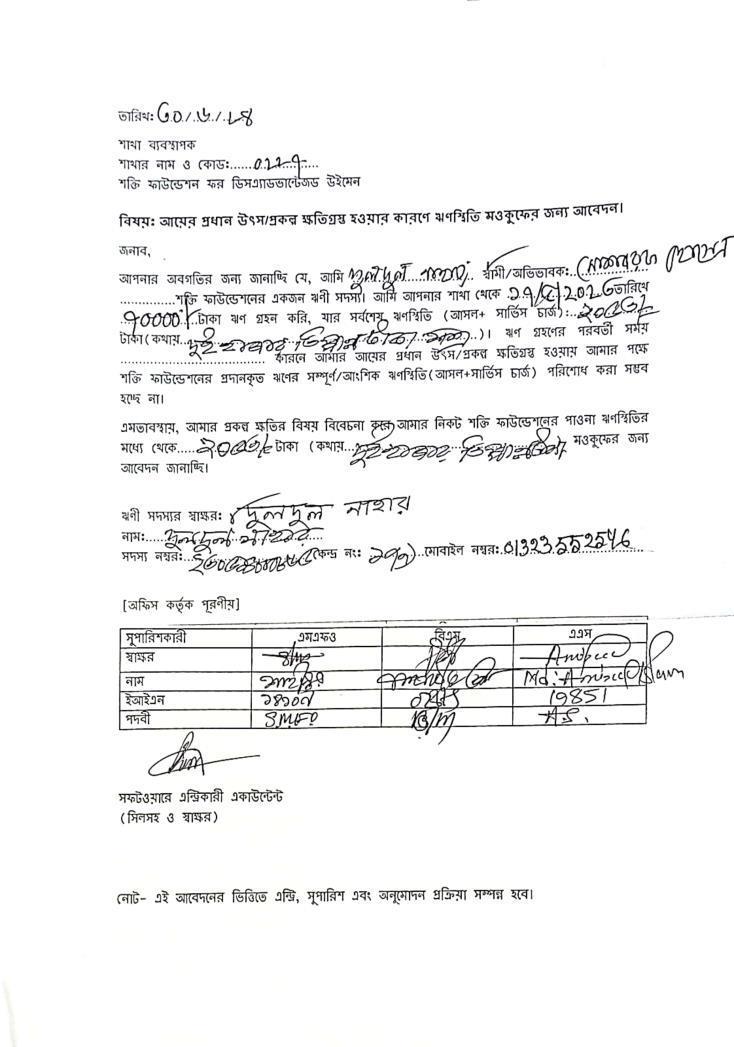 তারিখ: ৩০/৬/২৪
শাখা ব্যবস্থাপক
শাখার নাম ও কোড:......0227......
শক্তি ফাউন্ডেশন ফর ডিসএ্যাডভান্টেজড উইমেন
বিষয়: আয়ের প্রধান উৎস/প্রকল্প ক্ষতিগ্রস্থ হওয়ার কারণে ঋণস্থিতি মওকুফের জন্য আবেদন।
জনাব,
আপনার অবগতির জন্য জানাচ্ছি যে, আমি দুলদুল নাহার স্বামী/অভিভাবক:
শক্তি ফাউন্ডেশনের একজন ঋণী সদস্য। আমি আপনার শাখা থেকে তারিখে
৭০০০০/ টাকা ঋণ গ্রহন করি, যার সর্বশেষ ঋণস্থিতি (আসল+ সার্ভিস চার্জ):..২০৫৩/
টাকা (কথায়..দুই হাজার তিপ্পান্ন টাকা মাত্র..)। ঋণ গ্রহণের পরবর্তী সময়
কারনে আমার আয়ের প্রধান উৎস/প্রকল্প ক্ষতিগ্রস্থ হওয়ায় আমার পক্ষে
শক্তি ফাউন্ডেশনের প্রদানকৃত ঋণের সম্পূর্ণ/আংশিক ঋণস্থিতি(আসল+সার্ভিস চার্জ) পরিশোধ করা সম্ভব
হচ্ছে না।
এমতাবস্থায়, আমার প্রকল্প ক্ষতির বিষয় বিবেচনা করে আমার নিকট শক্তি ফাউন্ডেশনের পাওনা ঋণস্থিতির
মধ্যে থেকে.....২০৫৩/ টাকা (কথায়...দুই হাজার তিপ্পান্ন মওকুফের জন্য
আবেদন জানাচ্ছি।
ঋণী সদস্যর স্বাক্ষর: দুলদুল নাহার
নাম:.....দুলদুল নাহার
সদস্য নম্বর: কেন্দ্র নং: মোবাইল নম্বর:.01323552546
[অফিস কর্তৃক পূরণীয়]
সুপারিশকারী এমএফও বিএম এএস
স্বাক্ষর
নাম
ইআইএন 19851
পদবী SMFO B/M A.S.
সফটওয়ারে এন্ট্রিকারী একাউন্টেন্ট
(সিলসহ ও স্বাক্ষর)
নোট- এই আবেদনের ভিত্তিতে এন্ট্রি, সুপারিশ এবং অনুমোদন প্রক্রিয়া সম্পন্ন হবে।